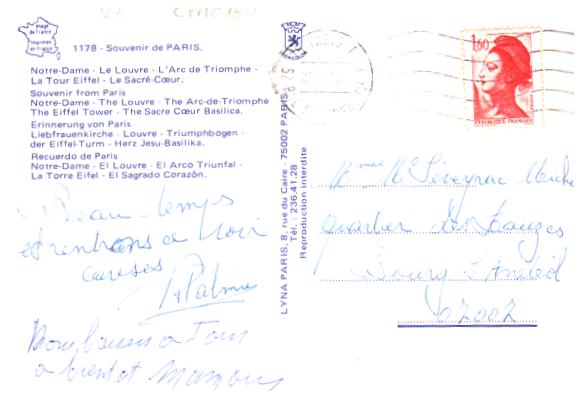 Image de France
Imprimée en France
1178 - Souvenir de PARIS.
Notre-Dame - Le Louvre - L'Arc de Triomphe -
La Tour Eiffel - Le Sacré-Cœur.
Souvenir from Paris
Notre-Dame - The Louvre - The Arc-de-Triomphe
The Eiffel Tower - The Sacre Cœur Basilica.
Erinnerung von Paris
Liebfrauenkirche - Louvre - Triumphbogen -
der Eiffel-Turm - Herz Jesu-Basilika.
Recuerdo de Paris
Notre-Dame - El Louvre - El Arco Triunfal -
La Torre Eifel - El Sagrado Corazón.
Beau temps
et rentrons ce soir
Palmie
Bons baisers a Tous
a bientot
LYNA PARIS, 8, rue du Caire - 75002 PARIS
Tél. : 236.41.28
Reproduction interdite
1,60
REPUBLIQUE FRANÇAISE
Mr Séveyrac
quartier des
Bourg St Andéol
07007